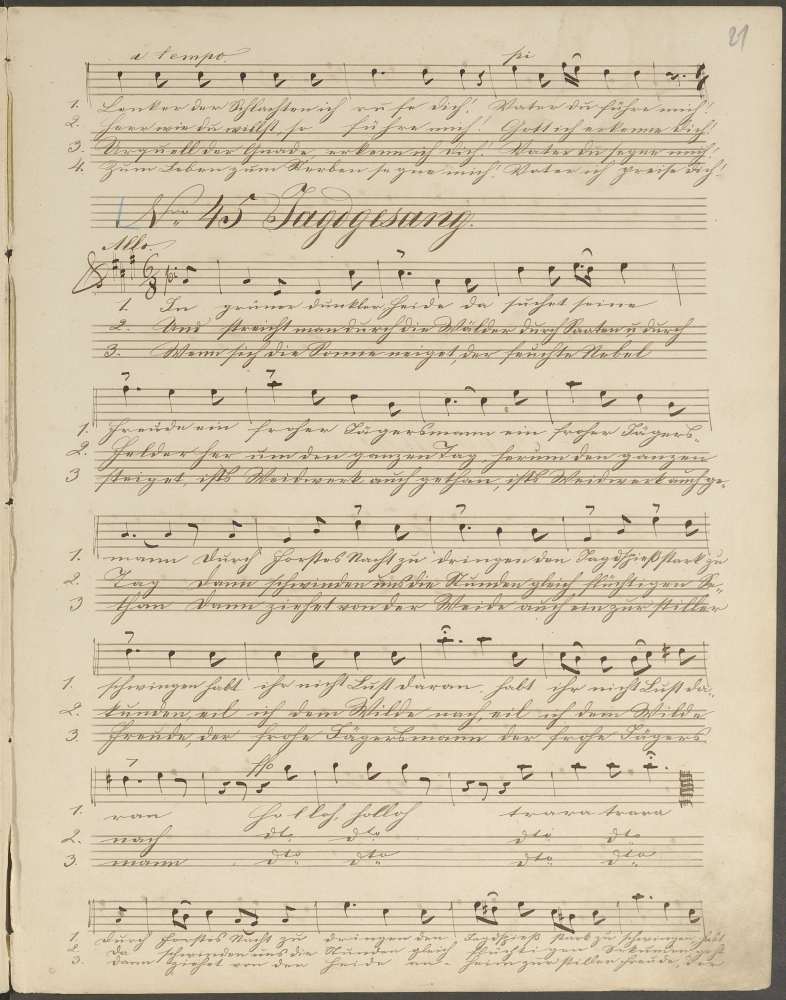 21
a tempo pi
1. Lenker der Schlachten ich rufe dich! Vater du führe mich!
2. Herr wie du willst, so führe mich! Gott ich erkenne dich!
3. Urquell der Gnade, erkenn ich dich! Vater du segne mich!
4. Zum Leben zum Sterben segne mich! Vater ich preise dich!
Nro 45 Jagdgesang.
Allo.
1. In grüner dunkler Heide da suchet seine
2. Und streicht man durch die Wälder durch Saaten u durch
3. Wenn sich die Sonne neiget, der feuchte Nebel
1. Freude ein froher Jägersmann ein froher Jägers-
2. Felder her um den ganzen Tag, herum den ganzen
3 steiget, ists Weidwerk auch gethan, ists Weidwerk auch ge-
1. mann Durch Forstes Nacht zu dringen den Jagdspieß stark zu
2. Tag Dann schwinden uns die Stunden gleich flüchtigen Se-
3 than Dann ziehet von der Weide auch ein zur stiller
1. schwingen habt ihr nicht Lust daran, habt ihr nicht Lust da-
2. kunden, eil ich dem Wilde nach, eil ich dem Wilde
3. Freude, der frohe Jägersmann der frohe Jägers
ffo
1. ran Holloh, holloh trara trara
2. nach dto dto dto dto
3. mann dto dto dto dto
1. Durch Forstes Nacht zu dringen den Jagdspieß stark zu schwingen habt
2. Da schwinden uns die Stunden gleich flüchtigen Sekunden
3. Dann ziehet von der Heide an- heim zur stillen Freude, der